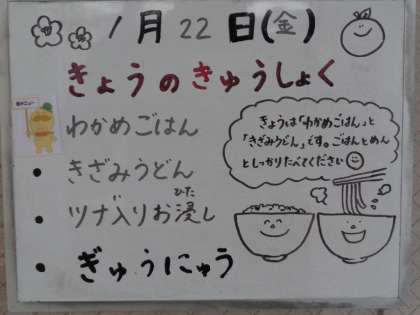 1月22日(金)
きょうのきゅうしょく
わかめごはん
きょうは「わかめごはん」と
「きざみうどん」です。ごはんとめん
としっかりたべてください
• きざみうどん
• ツナ入りお浸し
ひた
• ぎゅうにゅう